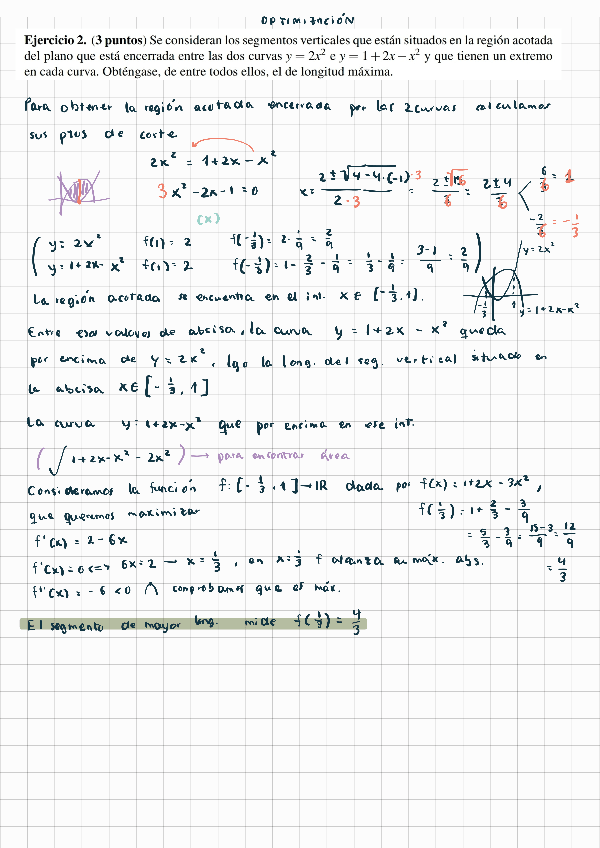 OPTIMIZACIÓN
Ejercicio 2. (3 puntos) Se consideran los segmentos verticales que están situados en la región acotada
del plano que está encerrada entre las dos curvas y = 2x² e y = 1 + 2x − x² y que tienen un extremo
en cada curva. Obténgase, de entre todos ellos, el de longitud máxima.
Para obtener la región acotada encerrada por las 2 curvas calculamos
sus ptos de corte
2x² = 1+2x − x²
3x² − 2x − 1 = 0 x = (2 ± √(4 − 4·(−1)·3)) / (2·3) = (2 ± √16)/6 = (2 ± 4)/6 < 6/6 = 1
−2/6 = −1/3
(x)
y = 2x² f(1) = 2 f(−1/3) = 2·1/9 = 2/9
y = 1+2x − x² f(1) = 2 f(−1/3) = 1 − 2/3 − 1/9 = 1/3 − 1/9 = (3−1)/9 = 2/9
y = 2x²
−1/3 1 y = 1+2x−x²
La región acotada se encuentra en el int. x ∈ [−1/3, 1].
Entre esos valores de abcisa, la curva y = 1+2x − x² queda
por encima de y = 2x², lgo la long. del seg. vertical situado en
la abcisa x ∈ [−1/3, 1]
La curva y = 1+2x−x² que por encima en ese int.
(∫ 1+2x−x² − 2x²) → para encontrar área
Consideramos la función f: [−1/3, 1] → IR dada por f(x) = 1+2x − 3x²,
que queremos maximizar
f(1/3) = 1 + 2/3 − 3/9
= 5/3 − 3/9 = (15−3)/9 = 12/9
= 4/3
f'(x) = 2 − 6x
f'(x) = 0 <=> 6x = 2 → x = 1/3, en x = 1/3 f alcanza su máx. abs.
f''(x) = −6 < 0 ∩ comprobamos que es máx.
El segmento de mayor long. mide f(1/3) = 4/3